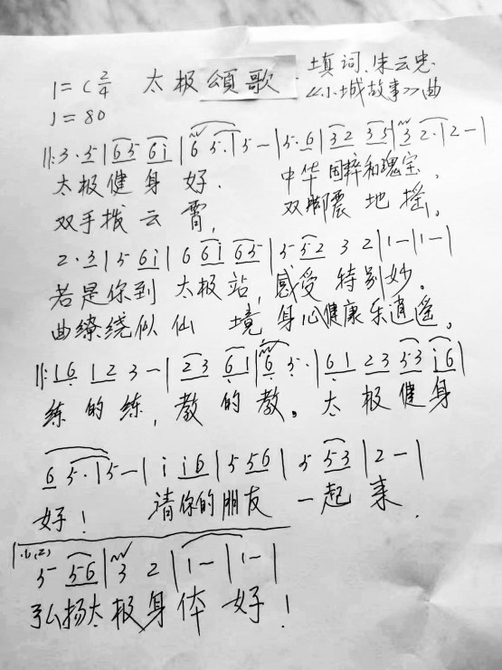 1=C 2/4 太极頌歌 填词、朱云忠
♩=80 《小城故事》曲
‖:3·5|65 6i|6 5·|5-|5·6|32 35|3 2·|2-|
太极健身 好. 中华国粹和瑰宝.
双手拨云霄, 双脚震地摇,
2·3|5 6i|6 6i 65|5 52 3 2|1-|1-|
若是你到太极站,感受特别妙。
曲缭绕似仙境 身心健康乐逍遥。
‖:16 12 3-|23 61|6 5·|61 23 53 i6|
练的练,教的教。太极健身
6 5·|5-|i i6|5 56|5 53|2-|
好! 请你的朋友一起来.
(2) 5 56|3 2|1-|1-|
弘扬太极身体好!